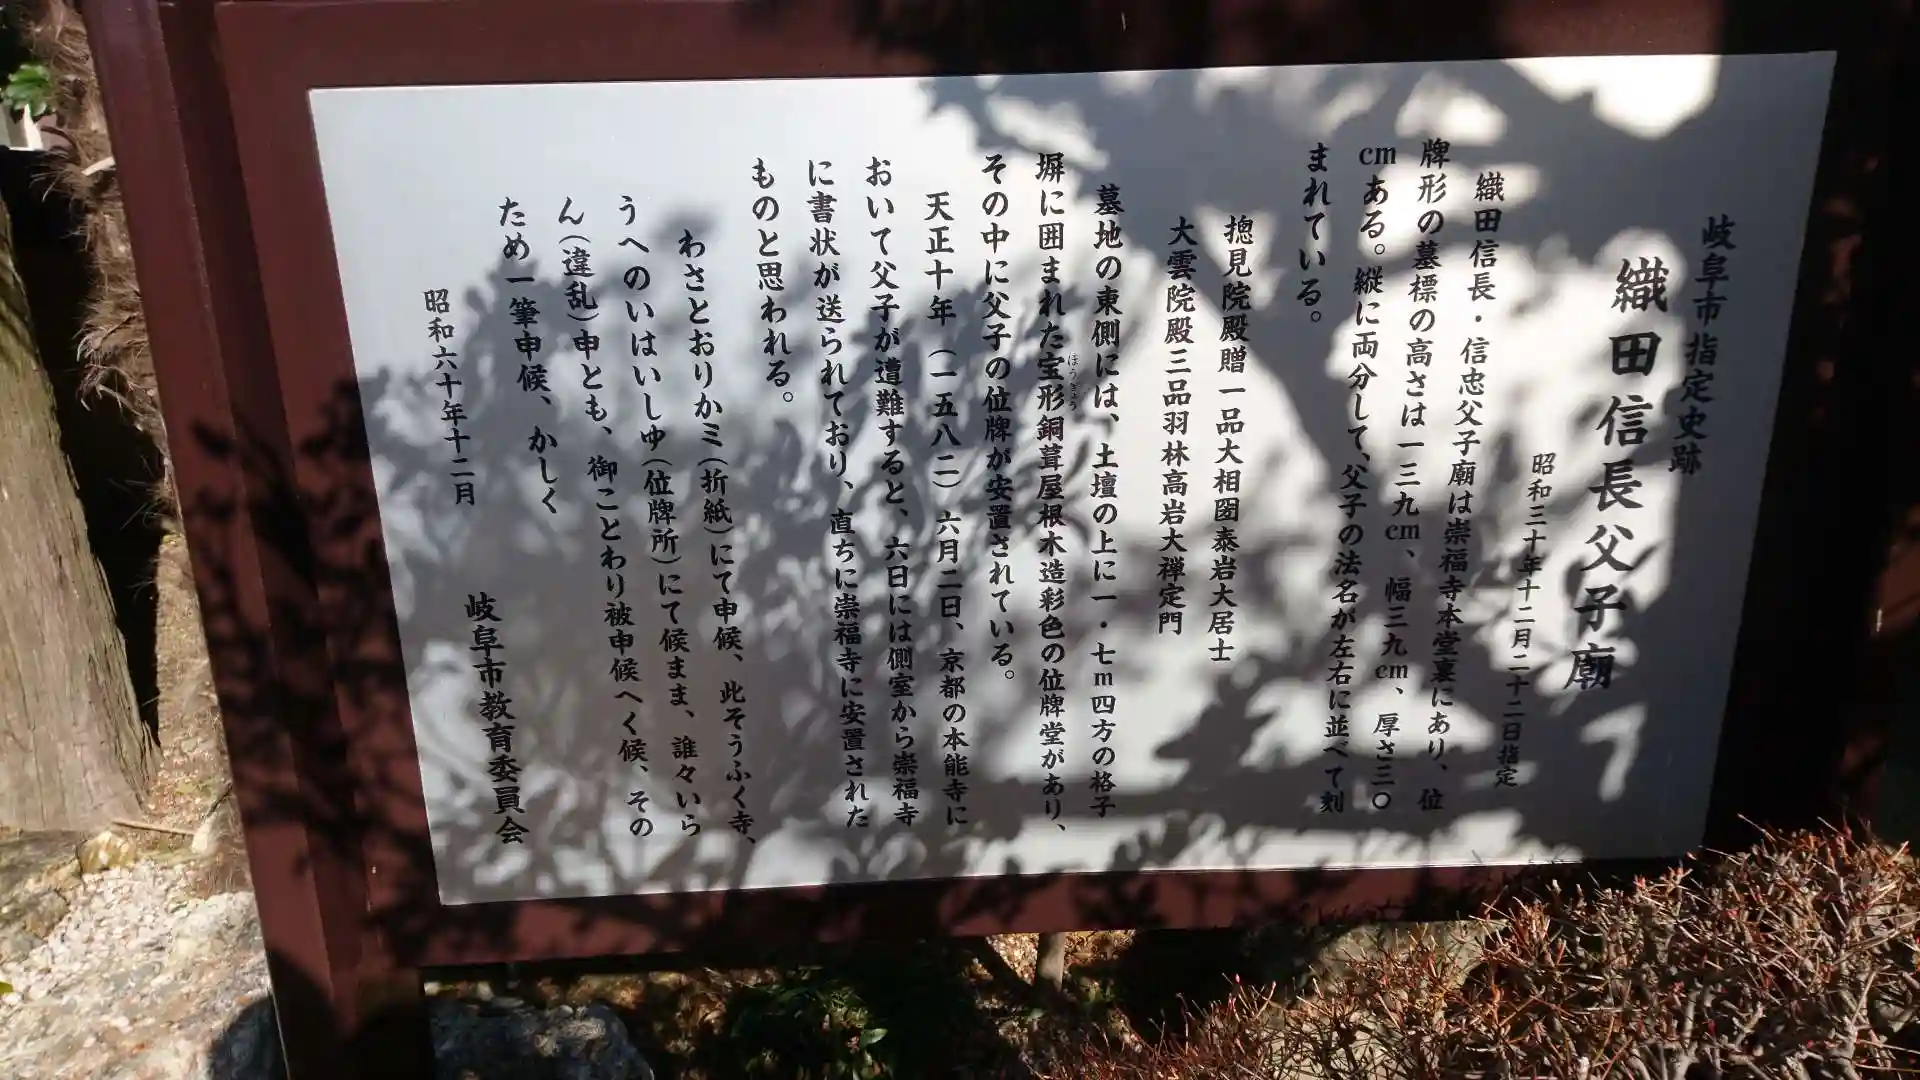 岐阜市指定史跡
織田信長父子廟
昭和三十年十二月二十二日指定
織田信長・信忠父子廟は崇福寺本堂裏にあり、位
牌形の墓標の高さは一三九cm、幅三九cm、厚さ三〇
cmある。縦に両分して、父子の法名が左右に並べて刻
まれている。
摠見院殿贈一品大相圀泰岩大居士
大雲院殿三品羽林高岩大禅定門
墓地の東側には、土壇の上に一・七m四方の格子
塀に囲まれた宝形銅葺屋根木造彩色の位牌堂があり、
ほうぎょう
その中に父子の位牌が安置されている。
天正十年（一五八二）六月二日、京都の本能寺に
おいて父子が遭難すると、六日には側室から崇福寺
に書状が送られており、直ちに崇福寺に安置された
ものと思われる。
わさとおりかミ（折紙）にて申候、此そうふく寺、
うへのいはいしゆ（位牌所）にて候まま、誰々いら
ん（違乱）申とも、御ことわり被申候へく候、その
ため一筆申候、かしく
昭和六十年十二月
岐阜市教育委員会